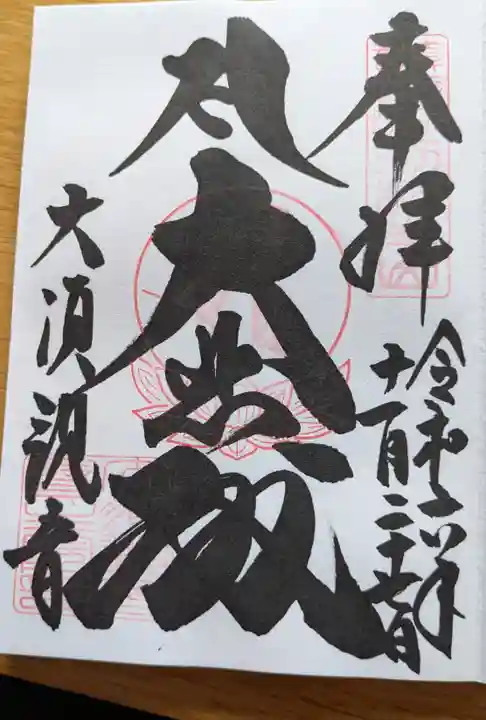 奉拝
令和六年
十一月二十七日
大悲殿
大須観音